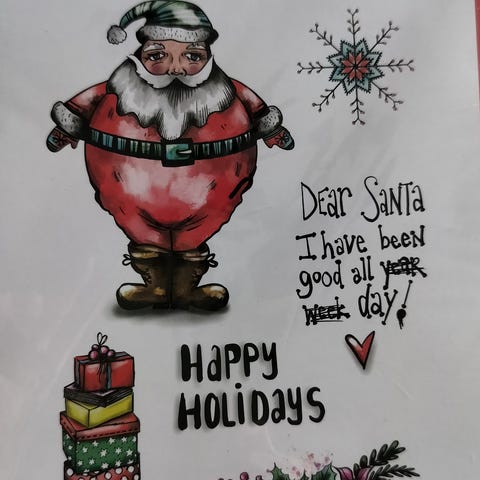 Dear Santa
I have been
good all year
week day!
Happy
Holidays